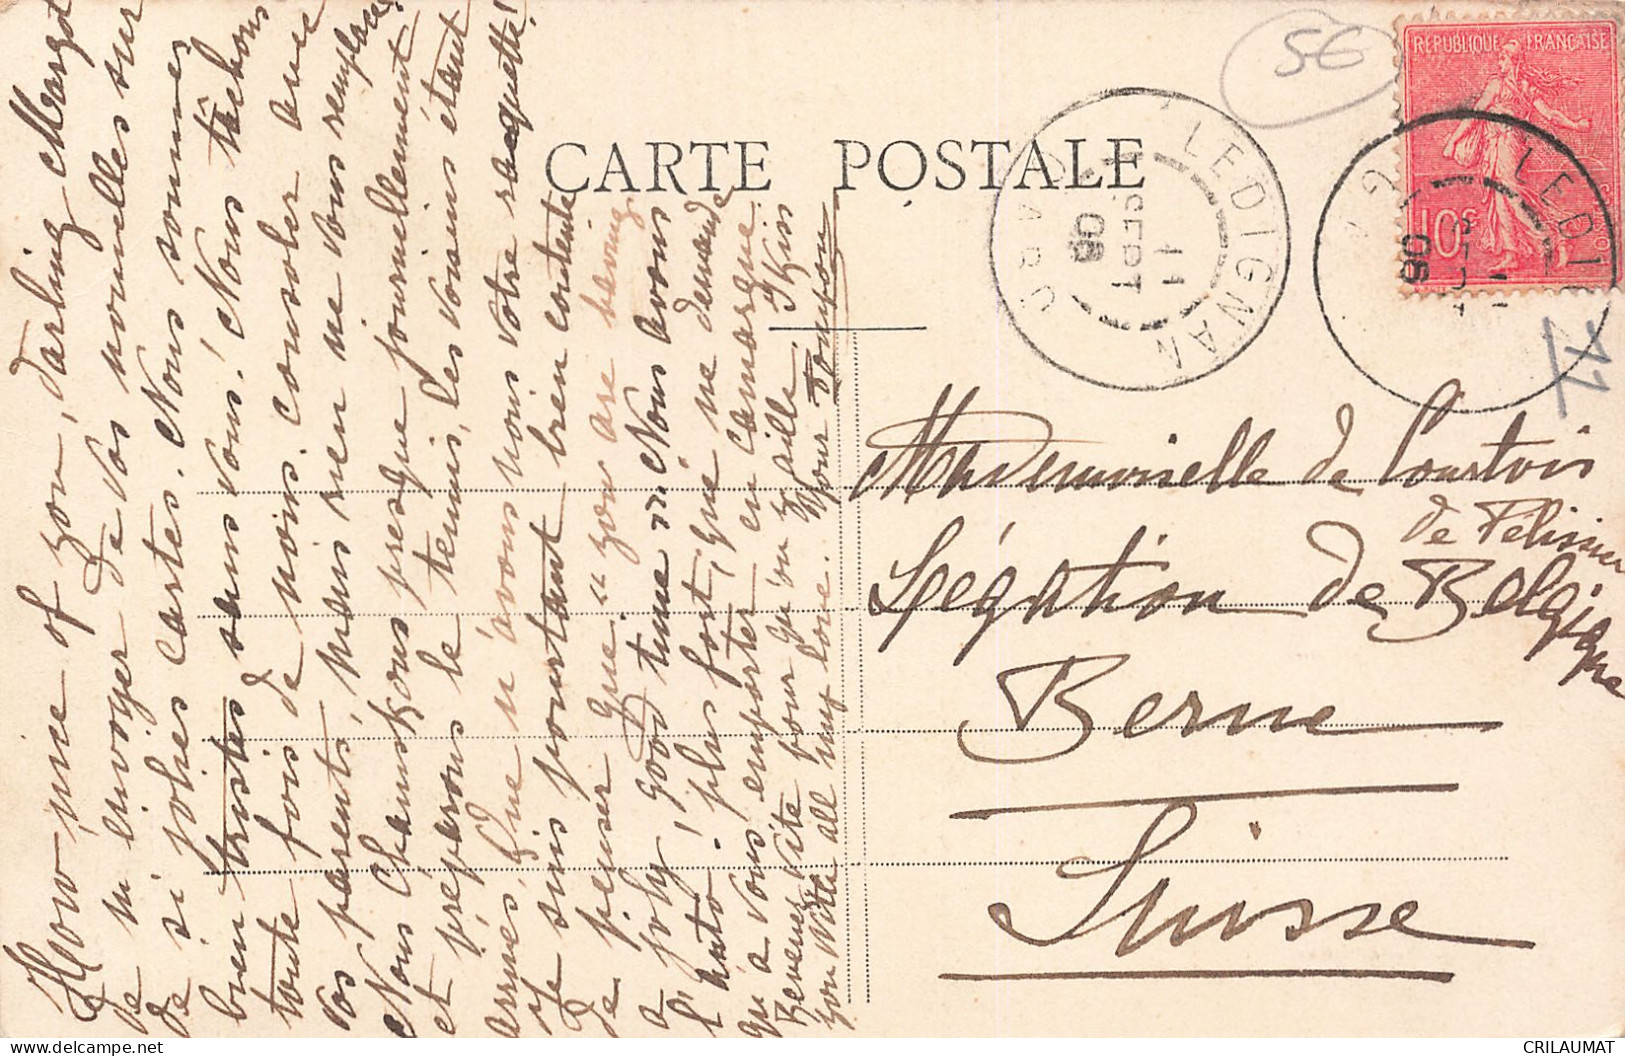 How nice of you, darling Margot
de m'envoyer de vos nouvelles sur
de si jolies cartes. Nous sommes
bien tristes sans vous! Nous tâchons
toute fois de nous consoler avec
vos parents, mais rien ne vous remplace!
Nous Chaussons presque journellement
et préparons le tennis, les voisins étant
arrivés, que n'avons nous votre raquette!
Je suis pourtant bien contente
de penser que "you are having
a joly good time". Nous avons
l'auto! plus fort, qui ne demande
qu'à vous emporter en camargue.
Revenez vite pour qu'on y aille. I kiss
you with all my love. Your Toupon
CARTE POSTALE
56
REPUBLIQUE FRANÇAISE
10c
LEDIGNAN
GARD
11
SEPT
06
LEDIG
06
Mademoiselle de Courtois
de Pélissier
Légation de Belgique
Berne
Suisse
CRILAUMAT